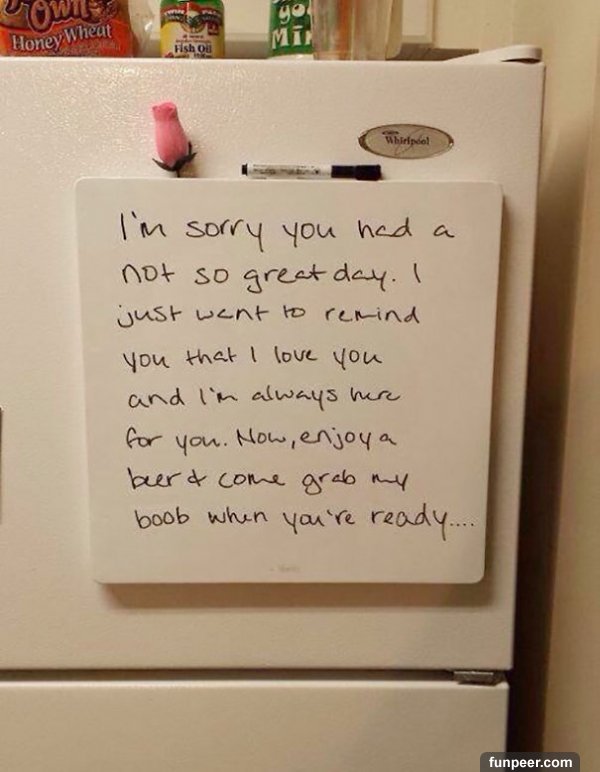 Own
Honey Wheat
Fish Oil
Whirlpool
I'm sorry you had a
not so great day. I
just want to remind
you that I love you
and I'm always here
for you. Now, enjoy a
beer & come grab my
boob when you're ready....
funpeer.com